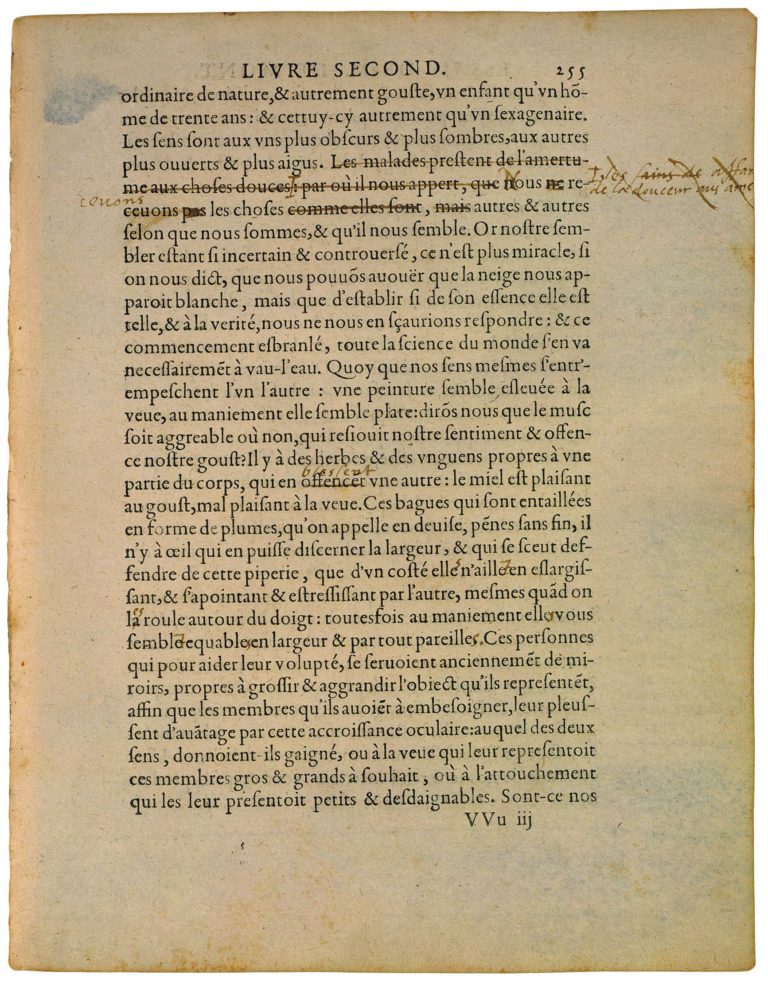 LIVRE SECOND. 255
ordinaire de nature,& autrement gouſte,vn enfant qu'vn hõ-
me de trente ans: & cettuy-cy autrement qu'vn ſexagenaire.
Les ſens ſont aux vns plus obſcurs & plus ſombres,aux autres
plus ouuerts & plus aigus. Les malades preſtent de l'amertu-
me aux choſes douces: par où il nous appert, que Nous ne re-
ceuons pas les choſes comme elles ſont, mais autres & autres
ceuons
ſes ſains de
de la douceur aus
ſelon que nous ſommes,& qu'il nous ſemble. Or noſtre ſem-
bler eſtant ſi incertain & controuerſé, ce n'eſt plus miracle, ſi
on nous dict, que nous pouuõs auouër que la neige nous ap-
paroit blanche, mais que d'eſtablir ſi de ſon eſſence elle eſt
telle,& à la verité,nous ne nous en ſçaurions reſpondre: & ce
commencement esbranlé, toute la ſcience du monde s'en va
neceſſairemẽt à vau-l'eau. Quoy que nos ſens meſmes s'entr'-
empeſchent l'vn l'autre: vne peinture ſemble eſleuée à la
veue, au maniement elle ſemble plate:dirõs nous que le muſc
ſoit aggreable où non,qui reſiouit noſtre ſentiment & offen-
ce noſtre gouſt?Il y à des herbes & des vnguens propres à vne
blessent
partie du corps, qui en offencet vne autre: le miel eſt plaiſant
au gouſt,mal plaiſant à la veue.Ces bagues qui ſont entaillées
en forme de plumes,qu'on appelle en deuiſe, pẽnes ſans fin, il
n'y à œil qui en puiſſe diſcerner la largeur, & qui ſe ſceut def-
fendre de cette piperie, que d'vn coſté elle n'aille en eſlargiſ-
ſant,& s'apointant & eſtreſſiſſant par l'autre, meſmes quãd on
es
la roule autour du doigt: toutesfois au maniement elle vous
ſemble equable en largeur & par tout pareilles.Ces perſonnes
qui pour aider leur volupté, ſe ſeruoient anciennemẽt de mi-
roirs, propres à groſſir & aggrandir l'obiect qu'ils repreſentẽt,
affin que les membres qu'ils auoiẽt à embeſoigner,leur pleuſ-
ſent d'auãtage par cette accroiſſance oculaire:auquel des deux
ſens, donnoient-ils gaigné, ou à la veue qui leur repreſentoit
ces membres gros & grands à ſouhait, où à l'attouchement
qui les leur preſentoit petits & deſdaignables. Sont-ce nos
VVu iij